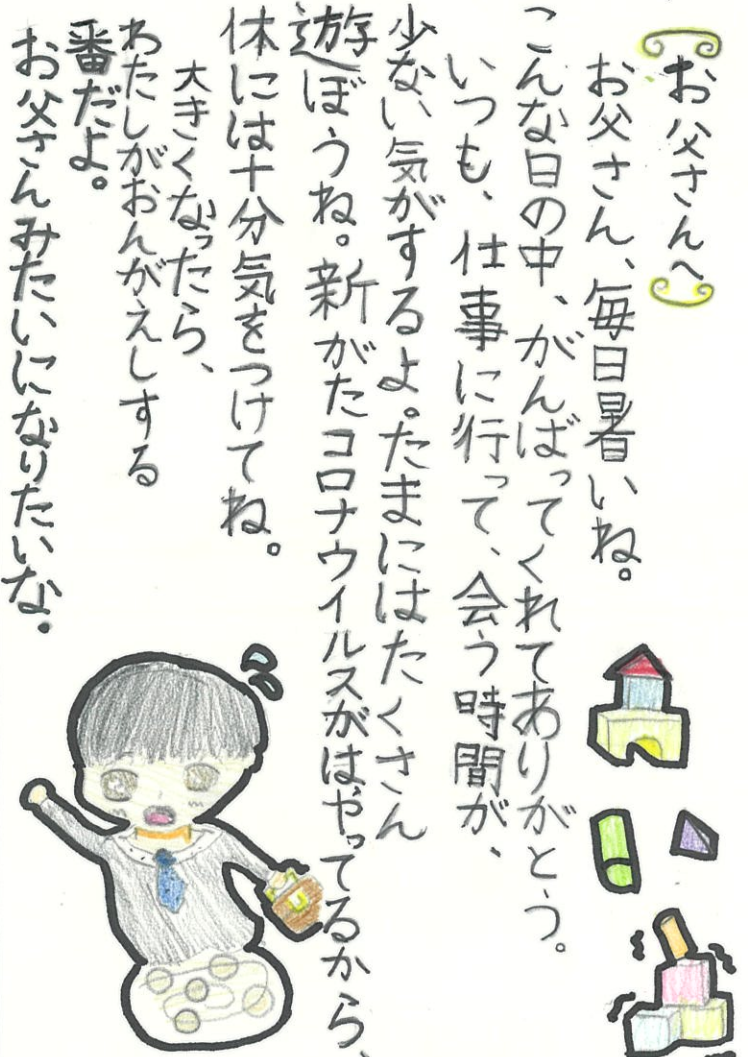 お父さんへ
お父さん、毎日暑いね。
こんな日の中、がんばってくれてありがとう。
いつも、仕事に行って、会う時間が、
少ない気がするよ。たまにはたくさん
遊ぼうね。新がたコロナウイルスがはやってるから、
体には十分気をつけてね。
大きくなったら、
わたしがおんがえしする
番だよ。
お父さんみたいになりたいな。